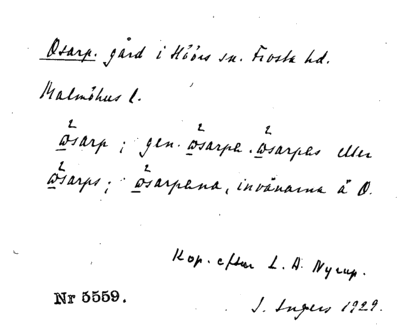 Osarp. gård i Höörs sn. Frosta hd.
Malmöhus l.
ω̲²sarp ; gen. ω̲²sarpa. ω̲²sarpas eller
ω̲²sarps ; ω̲²sarpana, invånarna å O.
Kop. efter L. A. Nyrup.
Nr 5559.
I. Ingers 1929.